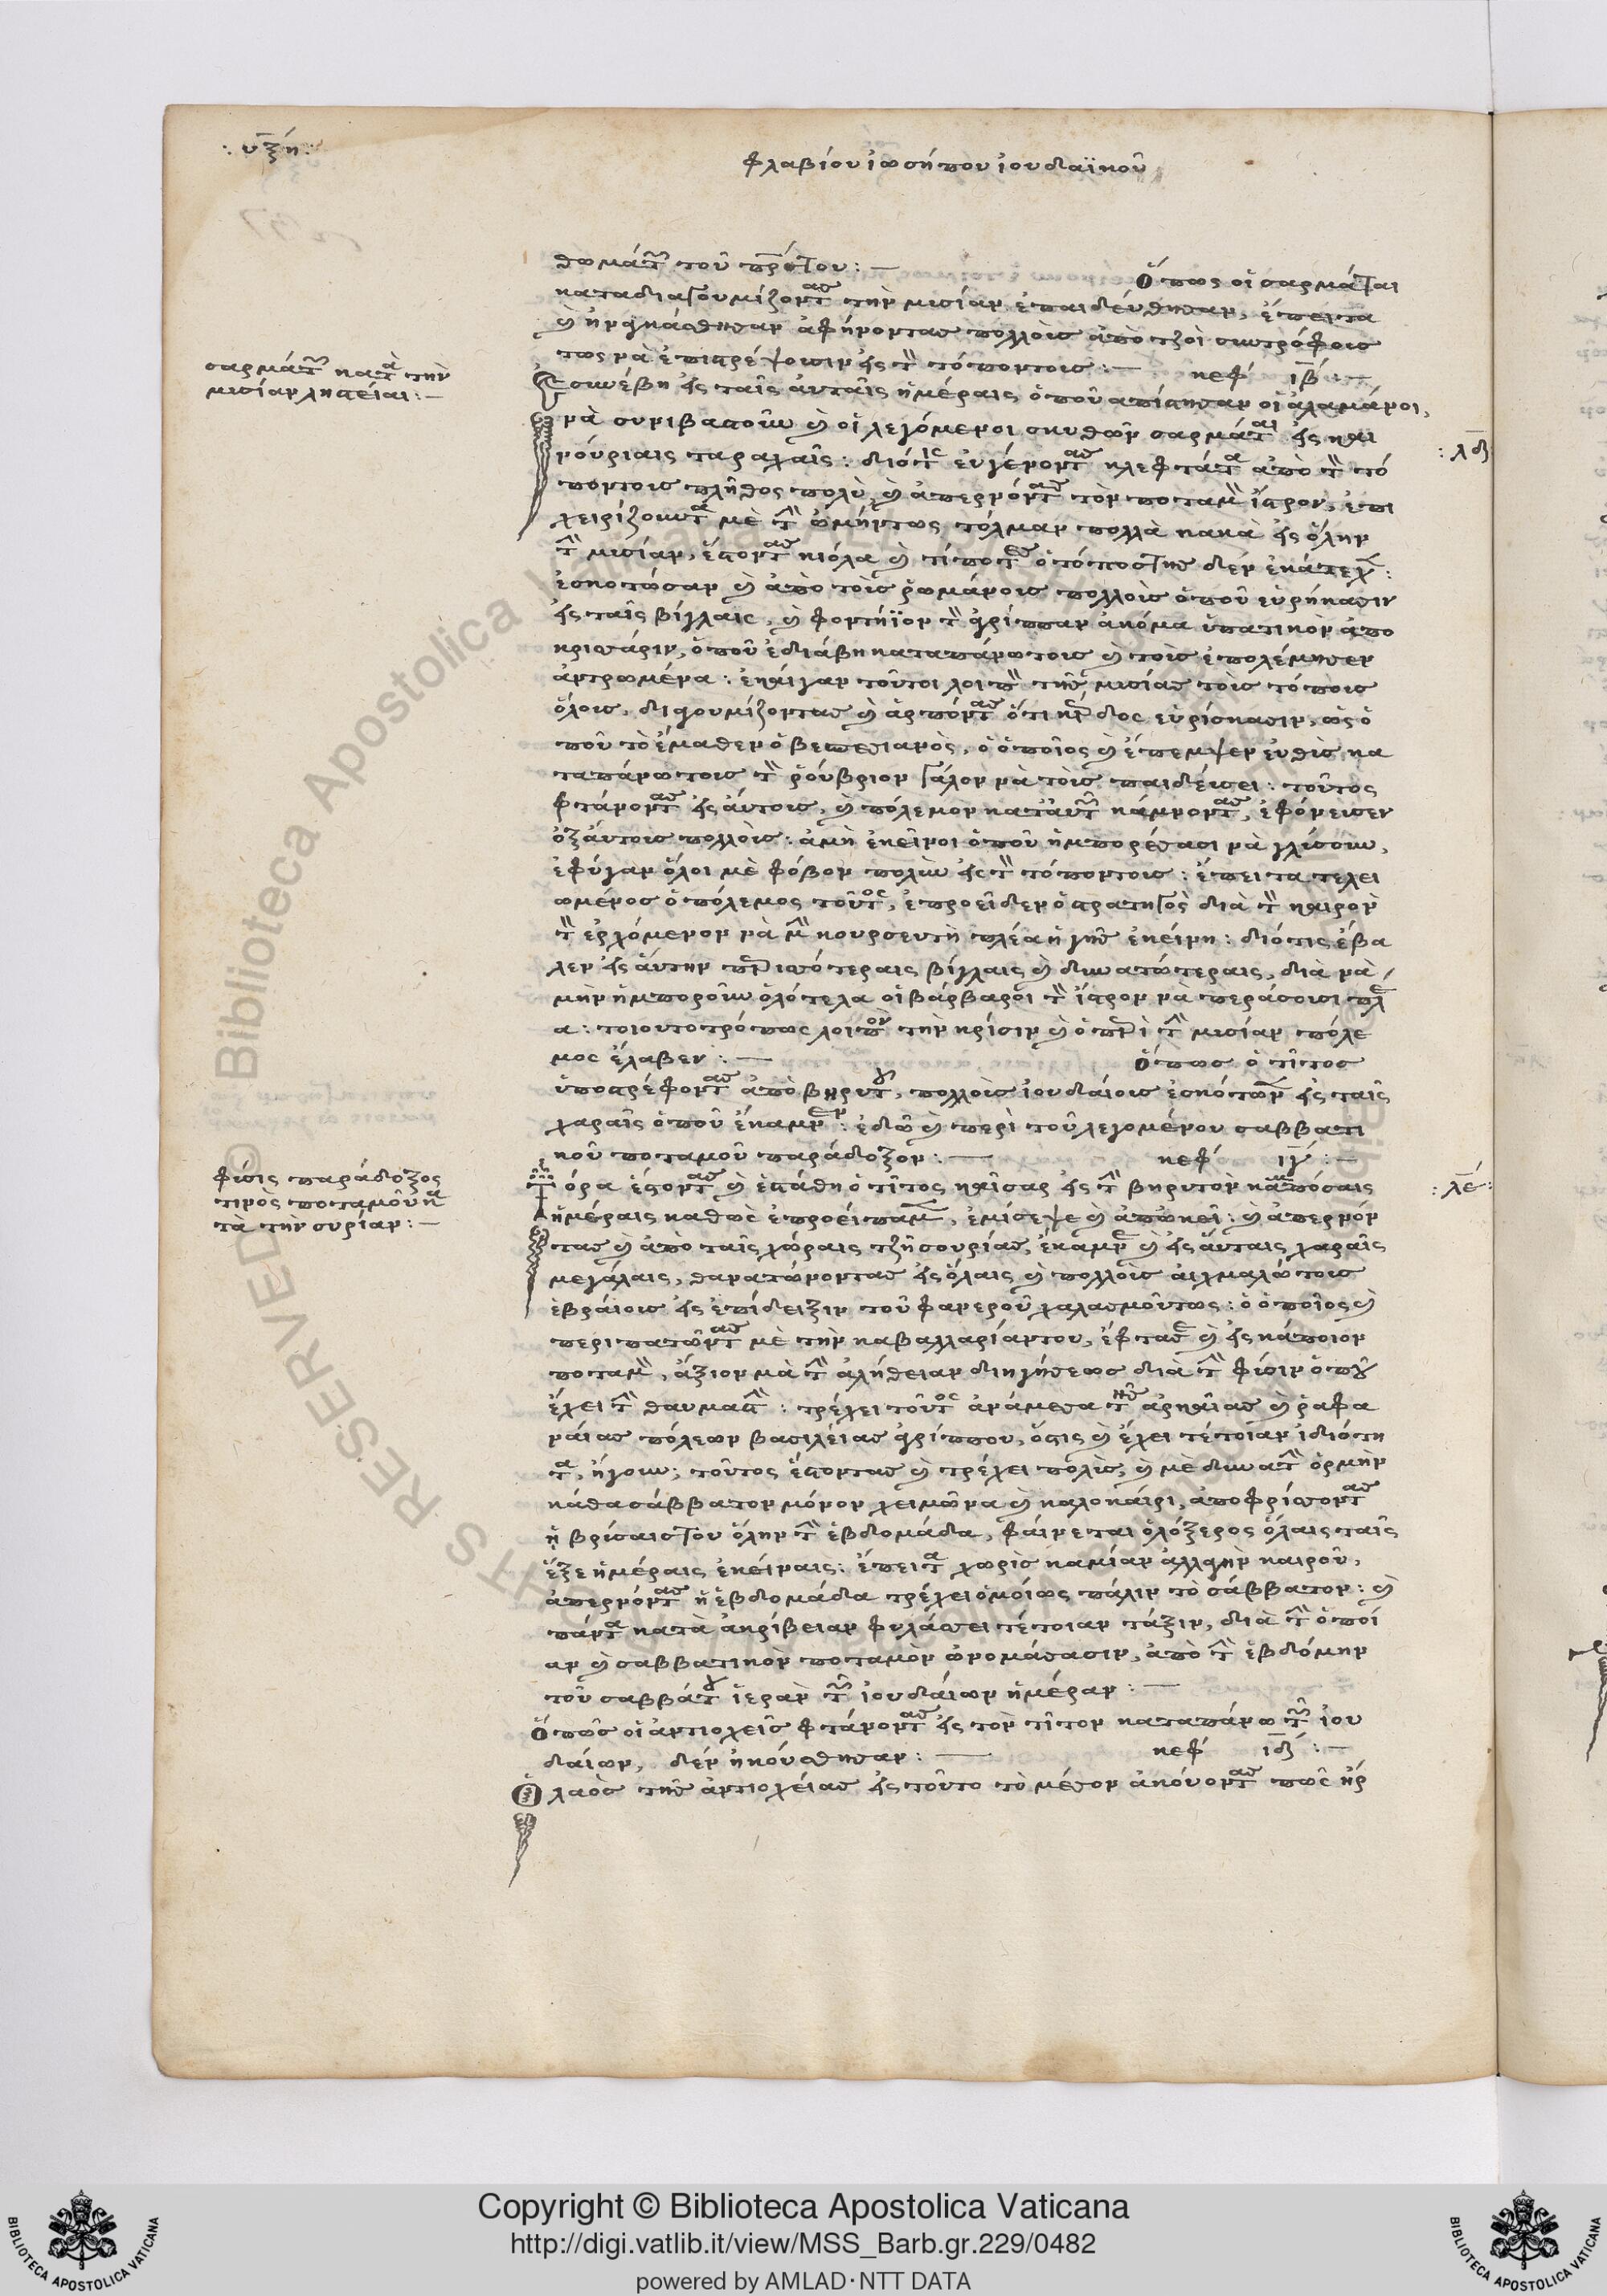 : υξη :
φλαβίου ἰωσήπου ἰουδαϊκοῦ
θωμάτων τοῦ πρώτου : —
Ὅπως οἱ σαρμάται
καταδιαγουμίζοντας τὴν μισίαν ἐπαιδεύθησαν, ἔπειτα
τως νὰ ἐπιστρέψουσιν εἰς τὸν τόπον τους : — κεφ ιβ : —
σαρμάτων κατὰ τὴν
μισίαν ληστείαι : —
συνέβη εἰς ταῖς αὐταῖς ἡμέραις ὁποῦ απίστησαν οἱ ἀλαμάνοι,
νὰ συνιβαστοῦν καὶ οἱ λεγόμενοι σκυθῶν σαρμάται εἰς και
: λδ
νούριαις ταραχαῖς : διότις εὐγένοντας κλεφτάτα ἀπὸ τὸν τό
πον τους πλῆθος πολὺ καὶ ἀπερνόντας τὸν ποταμὸν ἴστρον, ἐπι
χειρίζουνται μὲ τὴν ὠμήν τως τόλμαν πολλὰ κακὰ εἰς ὅλην
τὴν μισίαν, ἔστοντας κιόλα καὶ τίποτες ὁ τόπος της δὲν ἐκάτεχεν :
ἐσκοτώσαν καὶ ἀπὸ τοὺς ῥωμάνους πολλοὺς ὁποῦ εὑρήκασιν
εἰς ταῖς βίγλαις, καὶ φοντήϊον τὸν ἀγρίππαν ἀκόμα ὑπατικὸν ἀπο
κρισάριν, ὁποῦ ἐδιάβη καταπάνω τους καὶ τοὺς ἐπολέμησεν
ἀντρωμένα : ἐκαίγαν τοῦτοι λοιπὸν τῆς μισίας τοὺς τόπους
ὅλους, διαγουμίζοντας καὶ ἁρπόντας ὅτι κέρδος εὑρίσκασιν, ὡς ὁ
ποῦ τὸ ἔμαθεν ὁ βεσπεσιανὸς, ὁ ὁποῖος καὶ ἔπεμψεν εὐθὺς κα
ταπάνω τους τὸν ῥούβριον γάλον νὰ τοὺς παιδεύσει : τοῦτος
φτάνοντας εἰς αὐτους, καὶ πόλεμον κατ᾽ αὐτῶν κάμνοντας, ἐφόνευσεν
ὀξ αὐτους πολλοὺς : ἀμὴ ἐκεῖνοι ὁποῦ ἠμπορέσασι νὰ γλύσουν,
ἐφύγαν ὅλοι μὲ φόβον πολὺν εἰς τὸν τόπον τους : ἔπειτα τελει
ωμένος ὁ πόλεμος τοῦτος, ἐπροεῖδεν ὁ στρατηγὸς διὰ τὸν καιρὸν
τὸν ἐρχόμενον νὰ μὴν κουρσευτῇ πλέα ἡ γῆς ἐκείνη : διότις ἔβα
λεν εἰς αὐτην περισσότεραις βίγλαις καὶ δυνατώτεραις, διὰ νὰ
μὴν ἠμποροῦν ὁλότελα οἱ βάρβαροι τὸν ἴστρον νὰ περάσουσι πλέ
α : τοιουτοτρόπως λοιπὸν τὴν κρίσιν καὶ ὁ περὶ τὴν μισίαν πόλε
μος ἔλαβεν : — Ὅπως ὁ τίτος
ὑποστρέφοντας ἀπὸ βηρυτοῦ, πολλοὺς ἰουδαίους ἐσκότωνεν εἰς ταῖς
χαραῖς ὁποῦ ἔκαμνεν : ἐδῶ καὶ περὶ τοῦ λεγομένου σαββατι
κοῦ ποταμοῦ παράδοξον : — κεφ ιγ : —
φύσις παράδοξος
τινὸς ποταμοῦ κα
τὰ τὴν συρίαν : —
Τόρα ἔστοντας καὶ ἐστάθη ὁ τίτος καῖσαρ εἰς τὴν βηρυτὸν καμπόσαις
: λε :
ἡμέραις καθὼς ἐπροείπαμεν, ἐμίσεψε καὶ ἀπ᾽ ὠκεῖ : καὶ ἀπερνόν
τας καὶ ἀπὸ ταῖς χώραις τζῆ σουρίας, ἔκαμνε καὶ εἰς αὐταις χαραῖς
μεγάλαις, θανατώνοντας εἰς ὅλαις καὶ πολλοὺς αἰχμαλώτους
ἑβραίους εἰς ἐπίδειξιν τοῦ φανεροῦ χαλασμοῦ τως : ὁ ὁποῖος καὶ
περιπατῶντας μὲ τὴν καβαλλαρίαν του, ἔφτασε καὶ εἰς κάποιον
ποταμὸν, ἄξιον μὰ τὴν ἀλήθειαν διηγήσεως διὰ τὴν φύσιν ὁποῦ
ἔχει τὴν θαυμαστὴν : τρέχει τοῦτος ἀνάμεσα τῆς ἀρκαίας καὶ ῥαφα
ναίας πόλεων βασιλείας ἀγρίππου, ὅστις καὶ ἔχει τέτοιαν ἰδιότη
τα, ἤγουν : τοῦτος ἔστοντας καὶ τρέχει πολὺς, καὶ μὲ δυνατὴν ὁρμὴν
κάθα σάββατον μόνον χειμῶνα καὶ καλοκαίρι, ἀποφρίσσοντας
ἡ βρύσαις του ὅλην τὴν ἑβδομάδα, φαίνεται ὁλόξερος ὅλαις ταῖς
ἕξε ἡμέραις ἐκείναις : ἔπειτα χωρὶς καμίαν ἀλλαγὴν καιροῦ,
ἀπερνόντας ἡ ἑβδομάδα τρέχει ὁμοίως πάλιν τὸ σάββατον : καὶ
πάντα κατὰ ἀκρίβειαν φυλάσσει τέτοιαν τάξιν, διὰ τὴν ὁποί
αν καὶ σαββατικὸν ποταμὸν ὠνομάσασιν, ἀπὸ τὴν ἑβδόμην
τοῦ σαββάτου ἱερὰν τῶν ἰουδαίων ἡμέραν : —
Ὅπως οἱ ἀντιοχεῖς φτάνοντας εἰς τὸν τίτον καταπάνω τῶν ἰου
δαίων, δὲν ἠκούσθησαν : — κεφ ιδ : —
Ὁ λαὸς τῆς ἀντιοχείας εἰς τοῦτο τὸ μέσον ἀκούοντας πῶς ἤρ
RESERVED © Biblioteca Apostolica
Copyright © Biblioteca Apostolica Vaticana
http://digi.vatlib.it/view/MSS_Barb.gr.229/0482
powered by AMLAD·NTT DATA
BIBLIOTECA APOSTOLICA VATICANA
BIBLIOTECA APOSTOLICA VATICANA